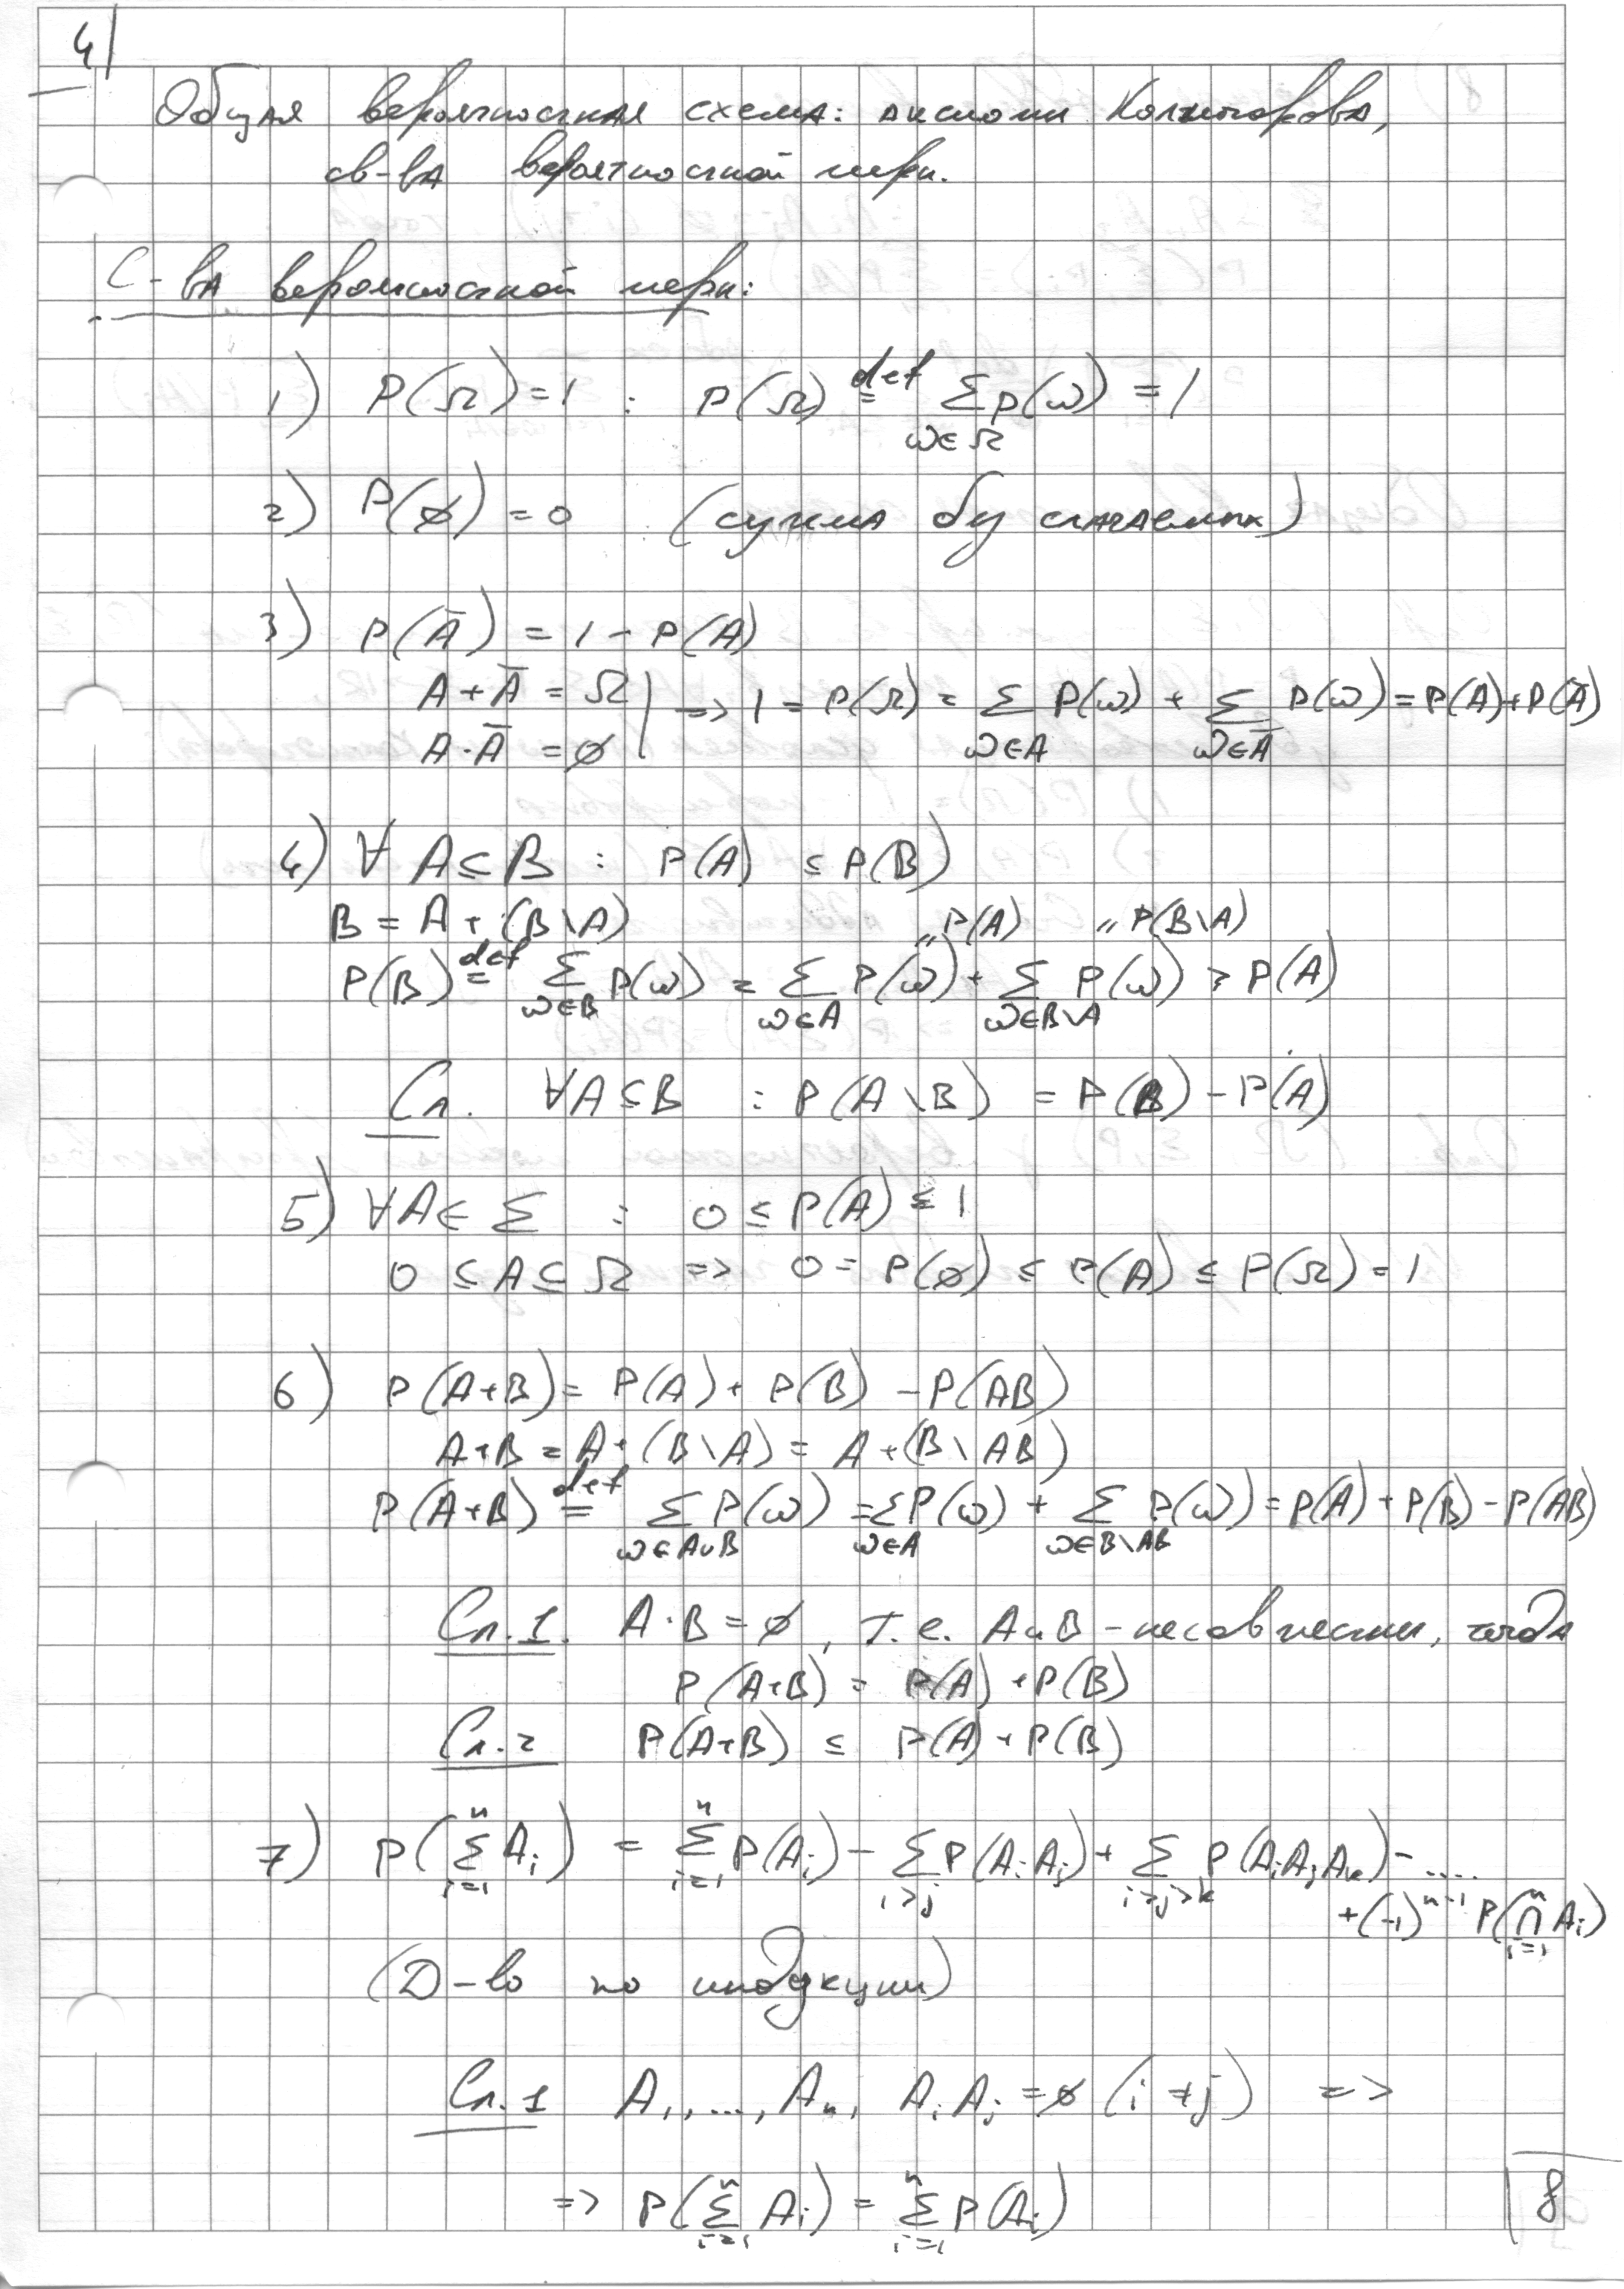 4
Общая вероятностная схема: аксиомы Колмогорова,
св-ва вероятностной меры.
С-ва вероятностной меры:
1) P(Ω)=1 : P(Ω) def= Σ_{ω∈Ω} p(ω) = 1
2) P(∅) = 0 (сумма без слагаемых)
3) P(Ā) = 1 - P(A)
A + Ā = Ω
A · Ā = ∅ | => 1 = P(Ω) = Σ_{ω∈A} P(ω) + Σ_{ω∈Ā} P(ω) = P(A)+P(Ā)
4) ∀ A⊆B : P(A) ≤ P(B)
B = A + (B\A) "P(A) "P(B\A)
P(B) def= Σ_{ω∈B} P(ω) = Σ_{ω∈A} P(ω) + Σ_{ω∈B\A} P(ω) ≥ P(A)
Сл. ∀A⊆B : P(A\B) = P(B) - P(A)
5) ∀A∈Σ : 0 ≤ P(A) ≤ 1
0 ⊆ A ⊆ Ω => 0 = P(∅) ≤ P(A) ≤ P(Ω) = 1
6) P(A+B) = P(A) + P(B) - P(AB)
A+B = A + (B\A) = A + (B\AB)
P(A+B) def= Σ_{ω∈A∪B} P(ω) = Σ_{ω∈A} P(ω) + Σ_{ω∈B\AB} P(ω) = P(A) + P(B) - P(AB)
Сл.1. A·B = ∅, т.е. A и B - несовместны, тогда
P(A+B) = P(A) + P(B)
Сл.2 P(A+B) ≤ P(A) + P(B)
7) P(Σ_{i=1}^{n} A_i) = Σ_{i=1}^{n} P(A_i) - Σ_{i>j} P(A_i A_j) + Σ_{i>j>k} P(A_i A_j A_k) - ....
+(-1)^{n-1} P(∩_{i=1}^{n} A_i)
(Д-во по индукции)
Сл.1 A_1, ..., A_n, A_i A_j = ∅ (i ≠ j) =>
=> P(Σ_{i=1}^{n} A_i) = Σ_{i=1}^{n} P(A_i)
8